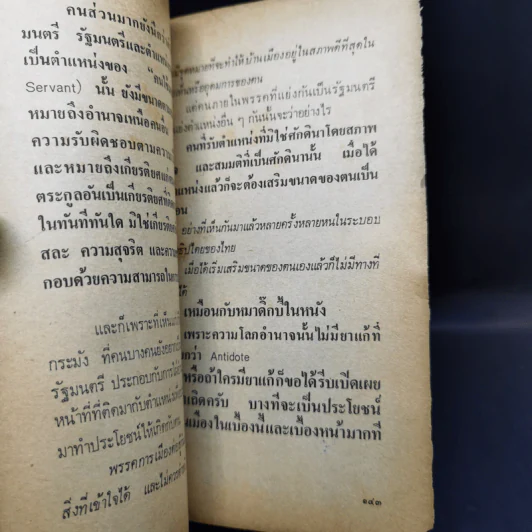 คนส่วนมากยังนึกว่า
มนตรี รัฐมนตรีและตำแหน่ง
เป็นตำแหน่งของ "คนใช้
Servant) นั้น ยังมีขนาดความ
หมายถึงอำนาจเหนือคนอื่น
ความรับผิดชอบตามความ
และหมายถึงเกียรติยศแก่
ตระกูลอันเป็นเกียรติยศที่
ในทันทีทันใด มิใช่เกียรติยศ
สละ ความสุจริต และความ
กอบด้วยความสามารถใน
และก็เพราะที่เห็น
กระมัง ที่คนบางคนยังอยาก
รัฐมนตรี ประกอบกับการได้
หน้าที่ที่ติดมากับตำแหน่ง
มาทำประโยชน์ให้เกิดกับตน
พรรคการเมืองคง
สิ่งที่เข้าใจได้ และไม่ควร
หมายที่จะทำให้บ้านเมืองอยู่ในสภาพดีที่สุดใน
หรืออุดมการของตน
แต่คนภายในพรรคที่แย่งกันเป็นรัฐมนตรี
ตำแหน่งอื่น ๆ กันนั้นจะว่าอย่างไร
คนที่รับตำแหน่งที่มิใช่ศักดินาโดยสภาพ
และสมมติที่เป็นศักดินานั้น เมื่อได้
แหน่งแล้วก็จะต้องเสริมขนาดของตนเป็น
อน
อย่างที่เห็นกันมาแล้วหลายครั้งหลายหนในระบอบ
ปไตยของไทย
เมื่อได้เริ่มเสริมขนาดของตนเองแล้วก็ไม่มีทางที่
ได้
เหมือนกับหมาดิ๊กปี้ในหนัง
เพราะความโลภอำนาจนั้นไม่มียาแก้ที่
กว่า Antidote
หรือถ้าใครมียาแก้ก็ขอได้รีบเปิดเผย
เถิดครับ บางทีจะเป็นประโยชน์
เมืองในเบื้องนี้และเบื้องหน้ามากที
๑๔๓